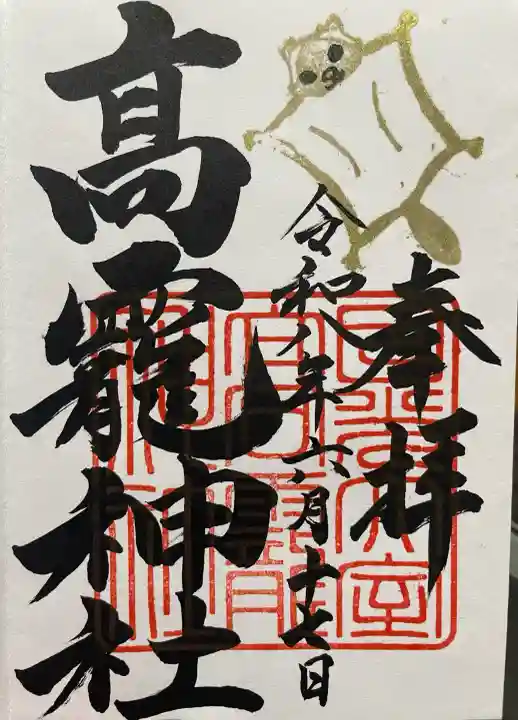 奉拝
令和八年六月十七日
高龗神社